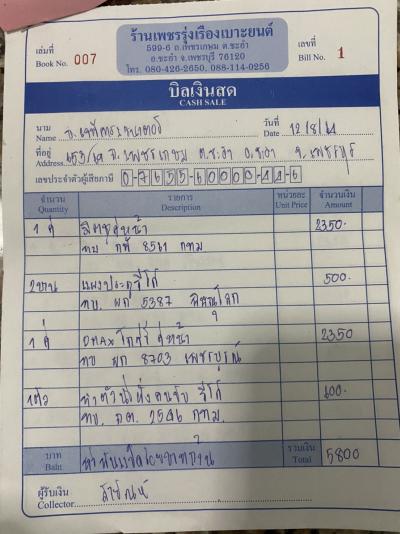 ร้านเพชรรุ่งเรืองเบาะยนต์
599-6 ถ.เพชรเกษม ต.ชะอำ
อ.ชะอำ จ.เพชรบุรี 76120
โทร. 080-426-2650, 088-114-0256
เล่มที่
Book No. 007
เลขที่
Bill No. 1
บิลเงินสด
CASH SALE
นาม
Name
วันที่
Date 12/8/61
ที่อยู่
Address 453/ จ.เพชรเกษม ต.ชะอำ อ.ชะอำ จ.เพชรบุรี
เลขประจำตัวผู้เสียภาษี
จำนวน Quantity รายการ Description หน่วยละ Unit Price จำนวนเงิน Amount
1 คู่ คู่หน้า 2350.-
ทบ 8561 กทม
2บาน แผงประตูรีโว้ 500.-
ทบ. ผก 5387 พิษณุโลก
1 คู่ DMAX คู่หน้า 2350
ทบ ผก 8703 เพชรบูรณ์
1ตัว 600.-
ทบ. 2546 กทม.
บาท Baht ห้าพันแปดร้อยบาทถ้วน รวมเงิน Total 5800
ผู้รับเงิน
Collector